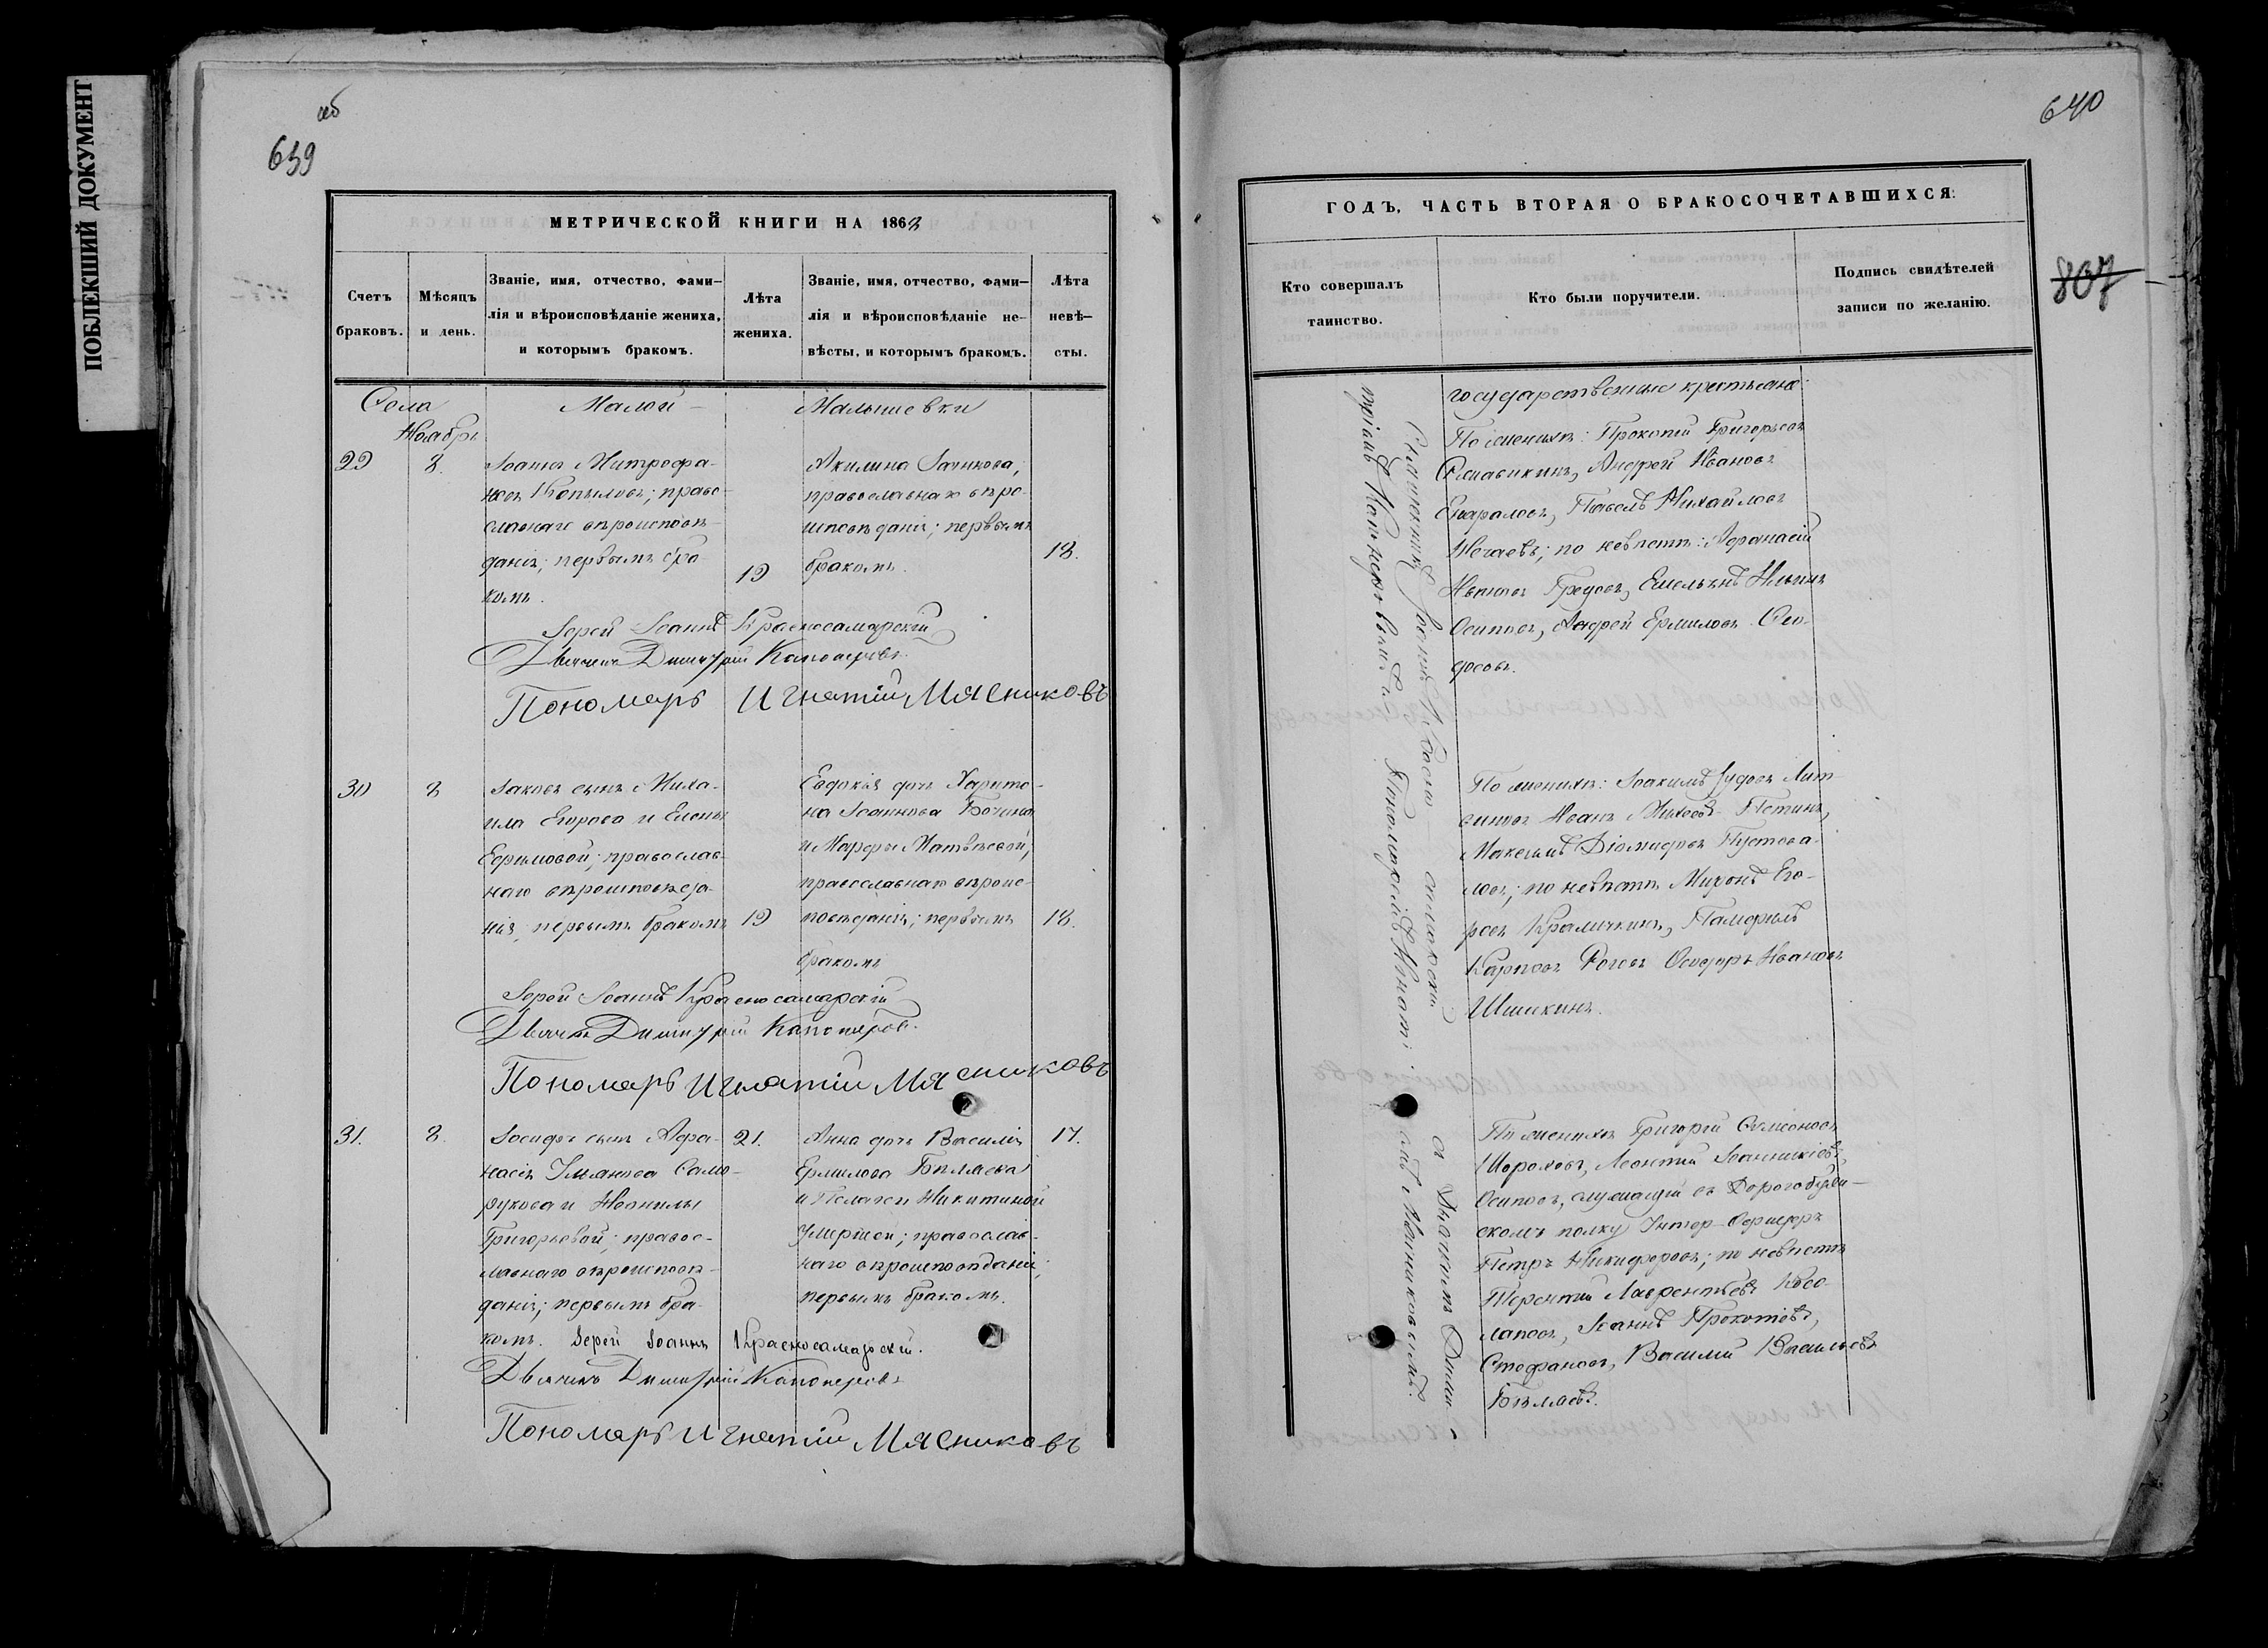 ПОБЛЕКШИЙ ДОКУМЕНТ
об
639
МЕТРИЧЕСКОЙ КНИГИ НА 1862
Счетъ браковъ.
Мѣсяцъ и день.
Званіе, имя, отчество, фами-
лія и вѣроисповѣданіе жениха,
и которымъ бракомъ.
Лѣта жениха.
Званіе, имя, отчество, фами-
лія и вѣроисповѣданіе не-
вѣсты, и которымъ бракомъ.
Лѣта невѣ-
сты.
Села Малой Малышевки
Ноябрь
29
8.
Іоаннъ Митрофа-
новъ Копыловъ; право-
славнаго вѣроисповѣ-
данія; первымъ бра-
комъ.
19
Акилина
православнаго вѣро-
исповѣданія; первымъ
бракомъ.
18.
Іерей Іоаннъ Красносамарскій
Дьячекъ Димитрій Капоцеровъ
Пономарь Игнатій Мясниковъ
30
8
Іаковъ сынъ Миха-
ила Егорова и Елены
Ефимовой; православ-
наго вѣроисповѣда-
нія, первымъ бракомъ
19
Евдокія дочь Харито-
на Іоаннова
и Марфы Матвѣевой,
православнаго вѣроис-
повѣданія; первымъ
бракомъ
18.
Іерей Іоаннъ Красносамарскій
Дьячекъ Димитрій Капоцеровъ.
Пономарь Игнатій Мясниковъ
31.
8.
Іосифъ сынъ Афа-
насія Само-
рукова и Неонилы
Григорьевой; правос-
лавнаго вѣроисповѣ-
данія; первымъ бра-
комъ. Іерей Іоаннъ Красносамарскій.
21.
Анна дочь Василія
Ермилова Бѣляева
и Пелагеи Никитиной
умершей; православ-
наго вѣроисповѣданія;
первымъ бракомъ.
17.
Дьячекъ Димитрій Капоцеровъ
Пономарь Игнатій Мясниковъ
640
807
ГОДЪ, ЧАСТЬ ВТОРАЯ О БРАКОСОЧЕТАВШИХСЯ:
Кто совершалъ
таинство.
Кто были поручители.
Подпись свидѣтелей
записи по желанію.
Священникъ Іоаннъ Красно-самарскій съ Дьячкомъ Дими-
тріемъ Капоцеровымъ и Пономаремъ Игнатіемъ Мясниковымъ.
государственные крестьяне:
По женихѣ: Прокопій Григорьевъ
Андрей Ивановъ
Павелъ Михайловъ
Нечаевъ; по невѣстѣ: Афанасій
Емельянъ Ильинъ
Осиповъ, Андрей Ермиловъ Ѳео-
фовъ.
По женихѣ: Іоакимъ Іудовъ Лит-
виновъ Иванъ Михеевъ Петинъ,
Максимъ Діомидовъ Пустова-
ловъ; по невѣстѣ Миронъ Его-
ровъ Памфилъ
Карповъ Роговъ Ѳеодоръ Ивановъ
Шишкинъ.
По женихѣ Григорій Симеоновъ
Шороховъ, Леонтій
Осиповъ, служащій въ Дорогобужи-
скомъ полку Унтер-Офицеръ
Петръ Никифоровъ; по невѣстѣ
Терентій Лаврентьевъ Косо-
лаповъ, Іоаннъ Прокопіевъ,
Стефановъ, Василій Васильевъ
Бѣляевъ.